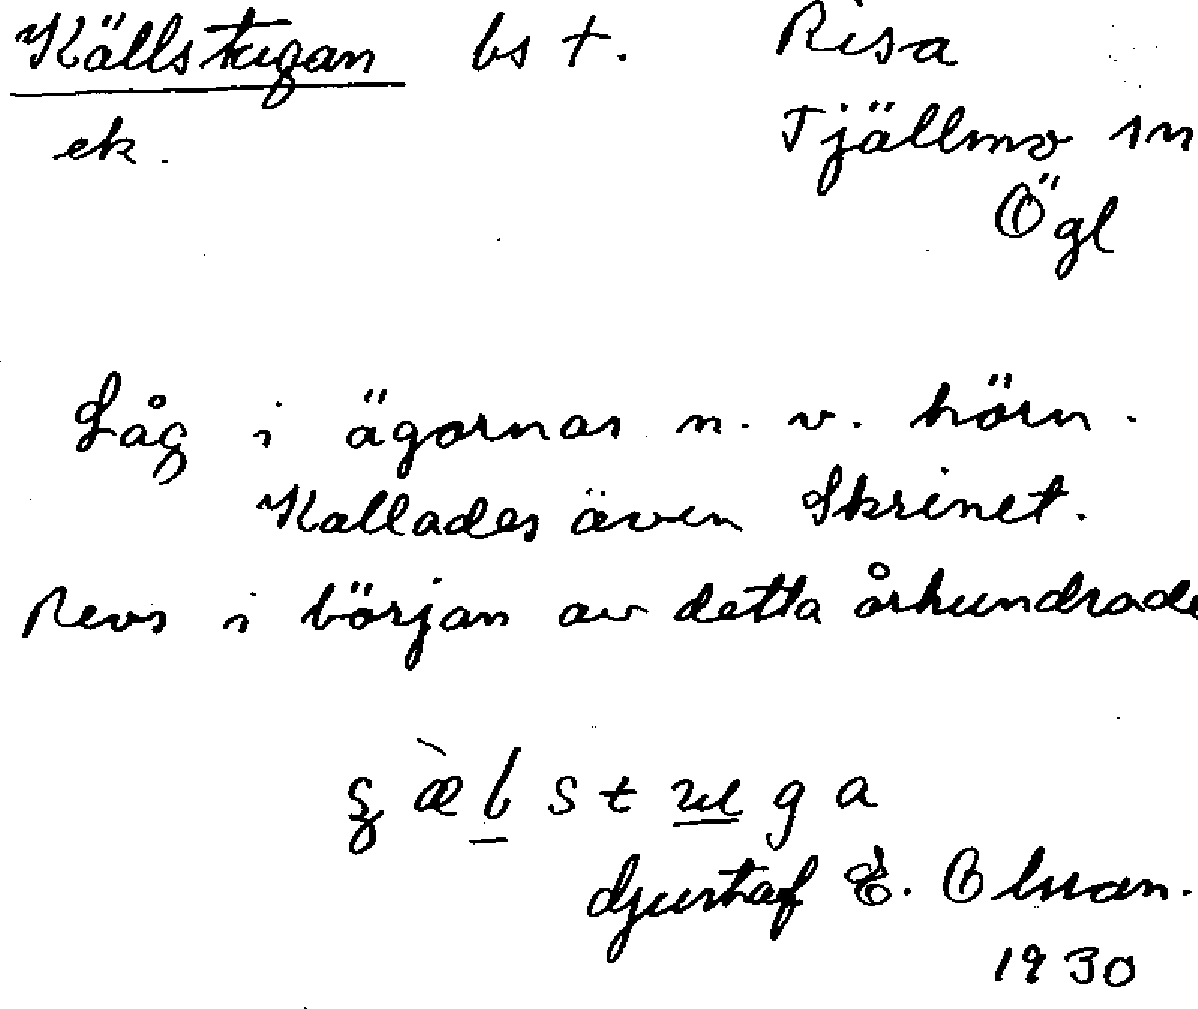 Källstugan bs †. Risa
ek. Tjällmo sn
Ögl
Låg i ägornas n. v. hörn.
Kallades även Skrinet.
Revs i början av detta århundrade
Gustaf E. Olsson.
1930